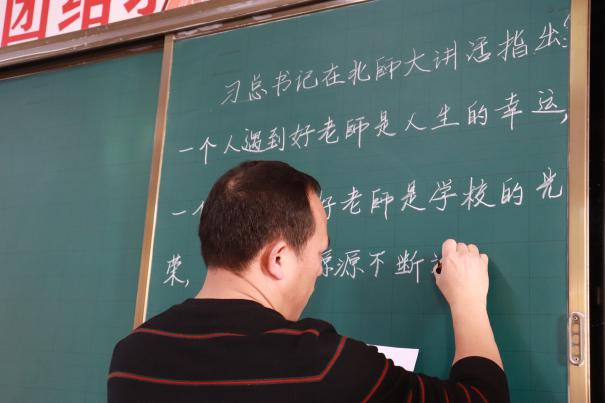 团结
习总书记在北師大讲话指出:
一个人遇到好老師是人生的幸运,
一个 好老師是学校的光
荣, 源源不断